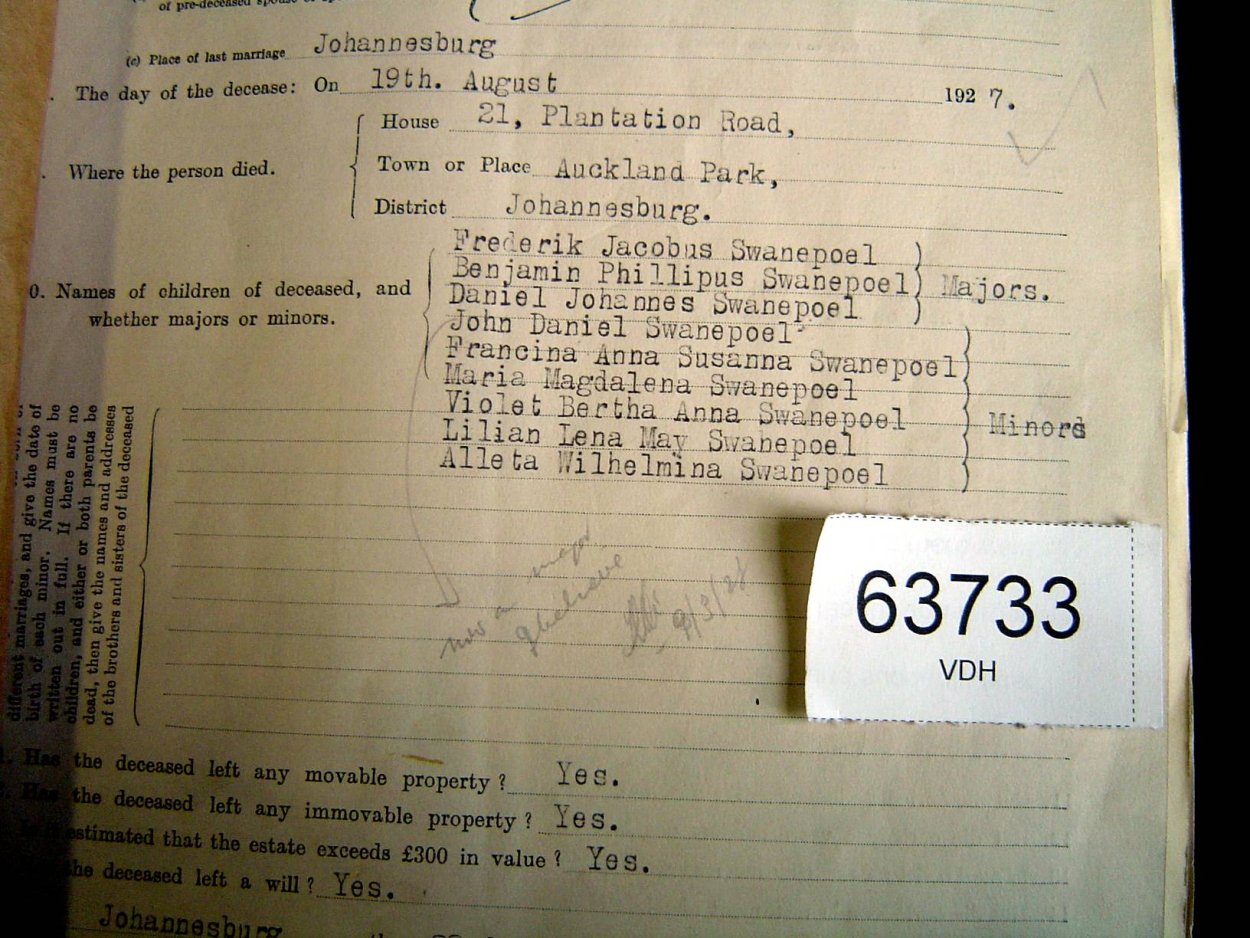 of pre-deceased spouse or
(c) Place of last marriage Johannesburg
The day of the decease: On 19th. August 1927.
Where the person died.
House 21, Plantation Road,
Town or Place Auckland Park,
District Johannesburg.
0. Names of children of deceased, and whether majors or minors.
Frederik Jacobus Swanepoel
Benjamin Phillipus Swanepoel
Daniel Johannes Swanepoel
Majors.
John Daniel Swanepoel
Francina Anna Susanna Swanepoel
Maria Magdalena Swanepoel
Violet Bertha Anna Swanepoel
Lilian Lena May Swanepoel
Alleta Wilhelmina Swanepoel
Minors
different marriages, and give the date of
birth of each minor. Names must be
written out in full. If there are no
children, and either or both parents be
dead, then give the names and addresses
of the brothers and sisters of the deceased
now a major
I believe
9/3/28
63733
VDH
Has the deceased left any movable property? Yes.
Has the deceased left any immovable property? Yes.
estimated that the estate exceeds £300 in value? Yes.
the deceased left a will? Yes.
Johannesburg